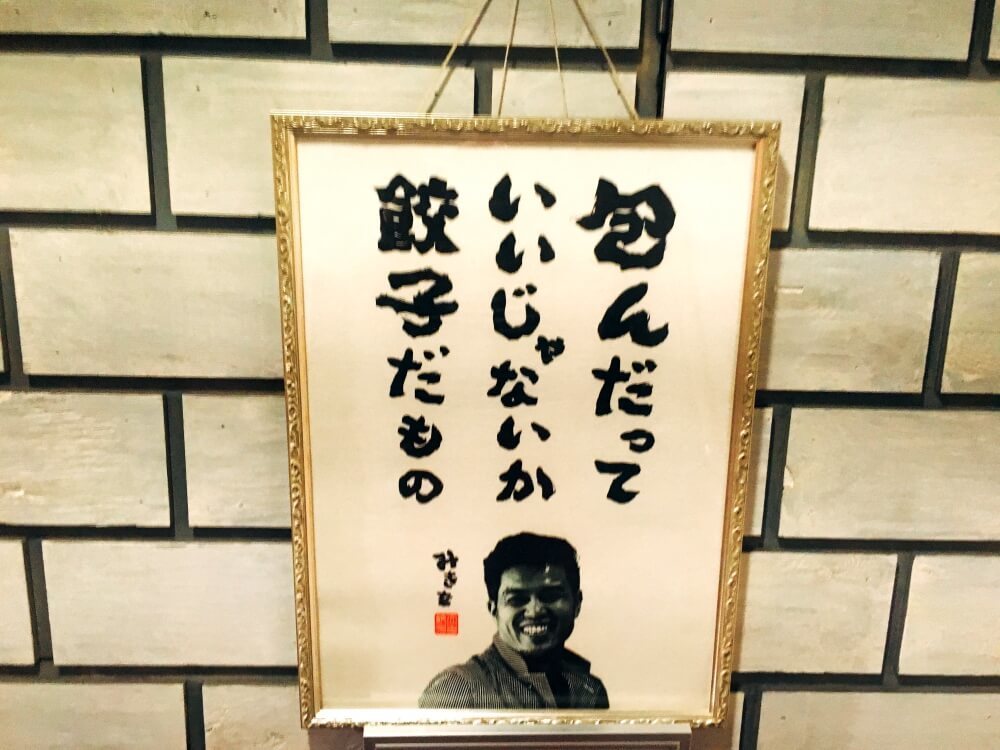 包んだって
いいじゃないか
餃子だもの